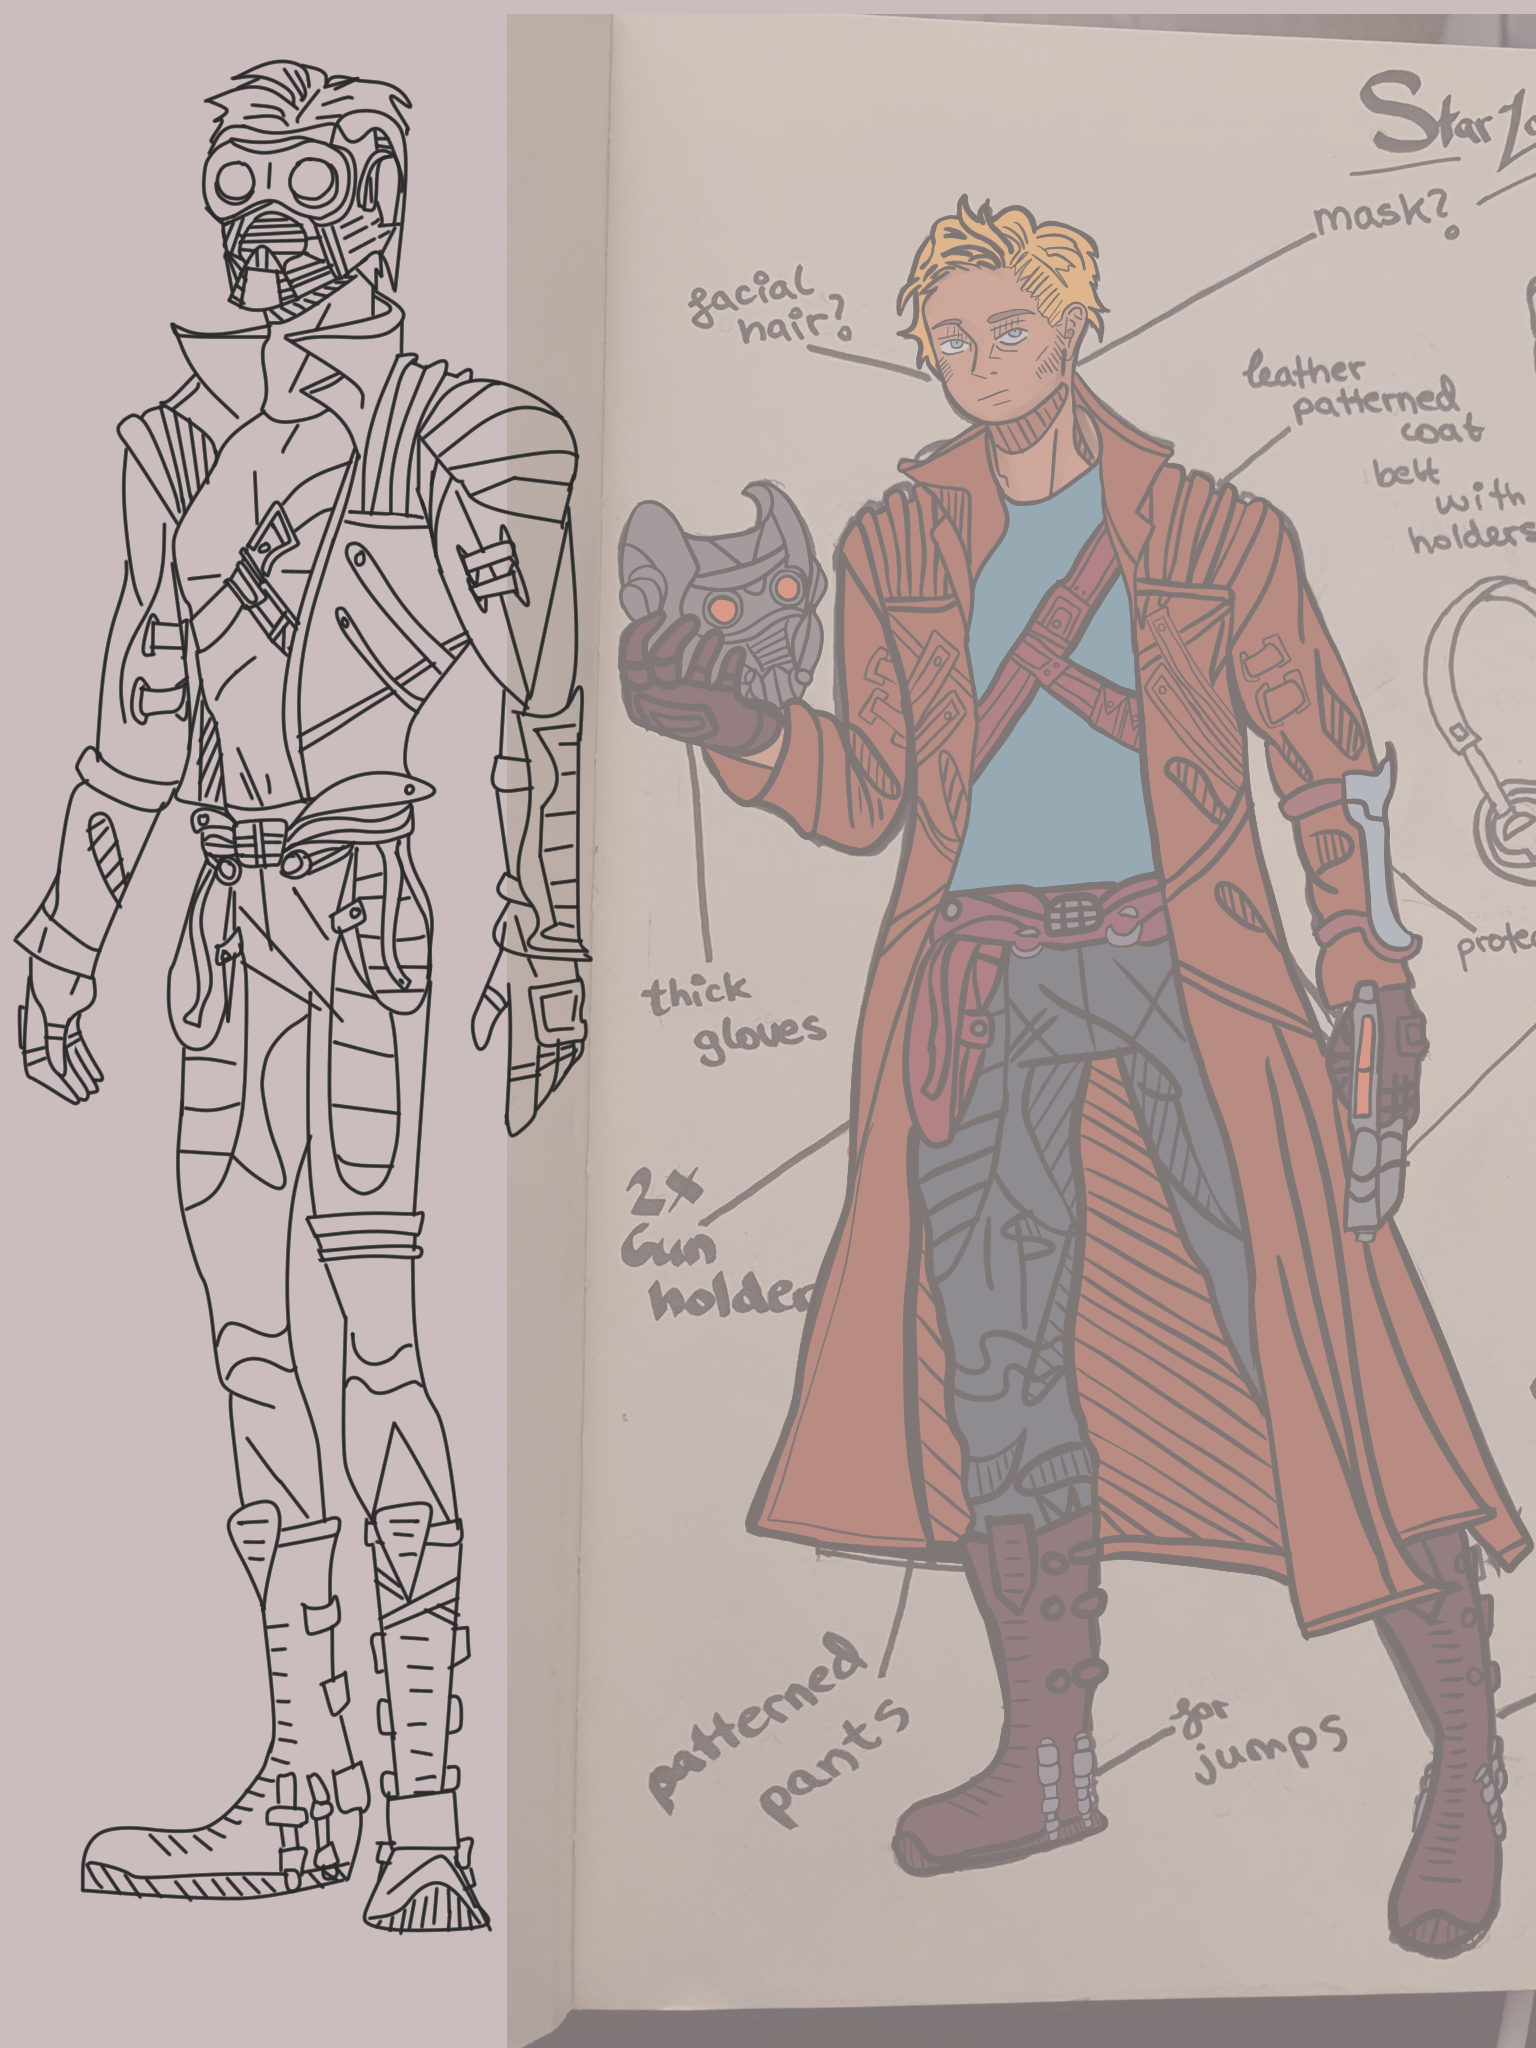 Star Lo
mask?
facial
hair?
leather
patterned
coat
belt
with
holders
thick
gloves
protec
2x
Gun
holder
patterned
pants
for
jumps